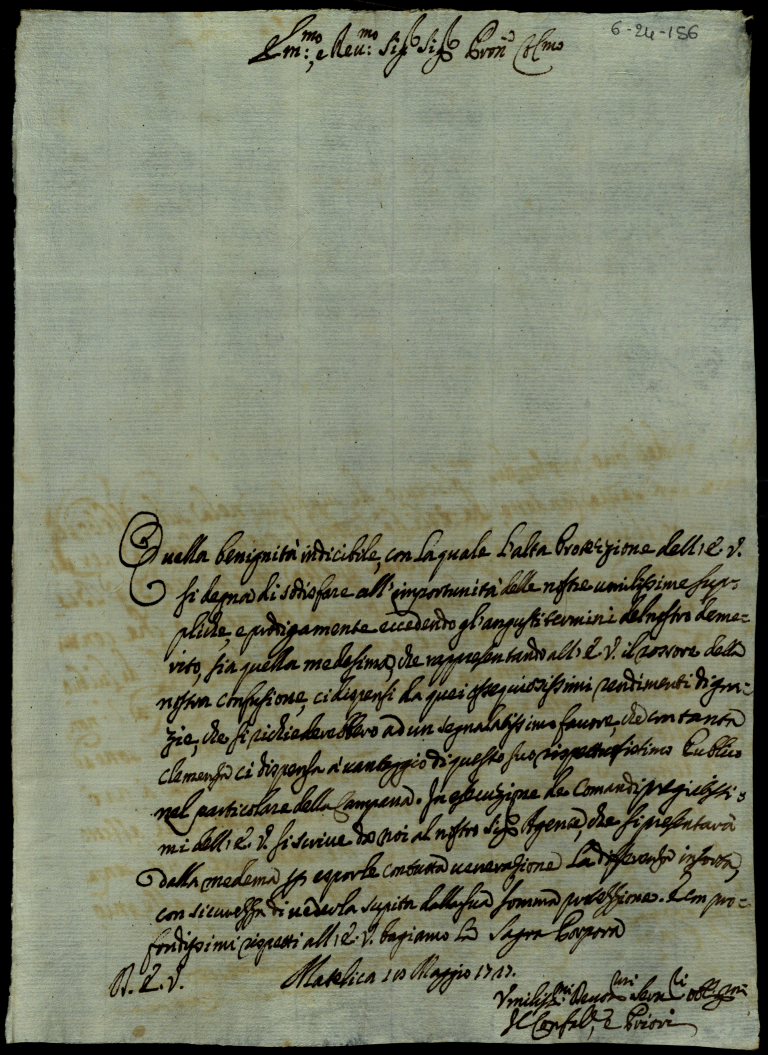 6-24-156
Em:mo, e Reu:mo Sig.r Sig.r Pron. Col.mo
Quella benignità indicibile, con la quale l'alta Protezzione dell'E. V.
si degna di sodisfare all'importunità delle nostre umilissime sup=
pliche, e prodigamente eccedendo gl'angusti termini del nostro deme=
rito, sia quella medesima, che rappresentando all'E. V. il rossore della
nostra confusione, ci dispensi da quei ossequiosissimi rendimenti di gra=
zie, che si richiederebbero ad un segnalatissimo fauore, che con tanta
clemenza ci dispensa à vantaggio di questo suo Publico
nel particolare della Campana. In esecuzione de Comandi pregiatissi=
mi dell'E. V. si scriue da noi al nostro Sig.r Agente, che si presentarà
dalla medema per esporle con tutta uenerazione la differenza insorta,
con sicurezza di uederla sopita dalla sua somma protezzione. E con pro=
fondissimi rispetti all'E. V. bagiamo la Sagra Porpora
D. E. V. Matelica 10 Maggio 1717.
Vmiliss.mi Deuot.mi Seru.ri obblig.mi
Il Confal.re, e Priori